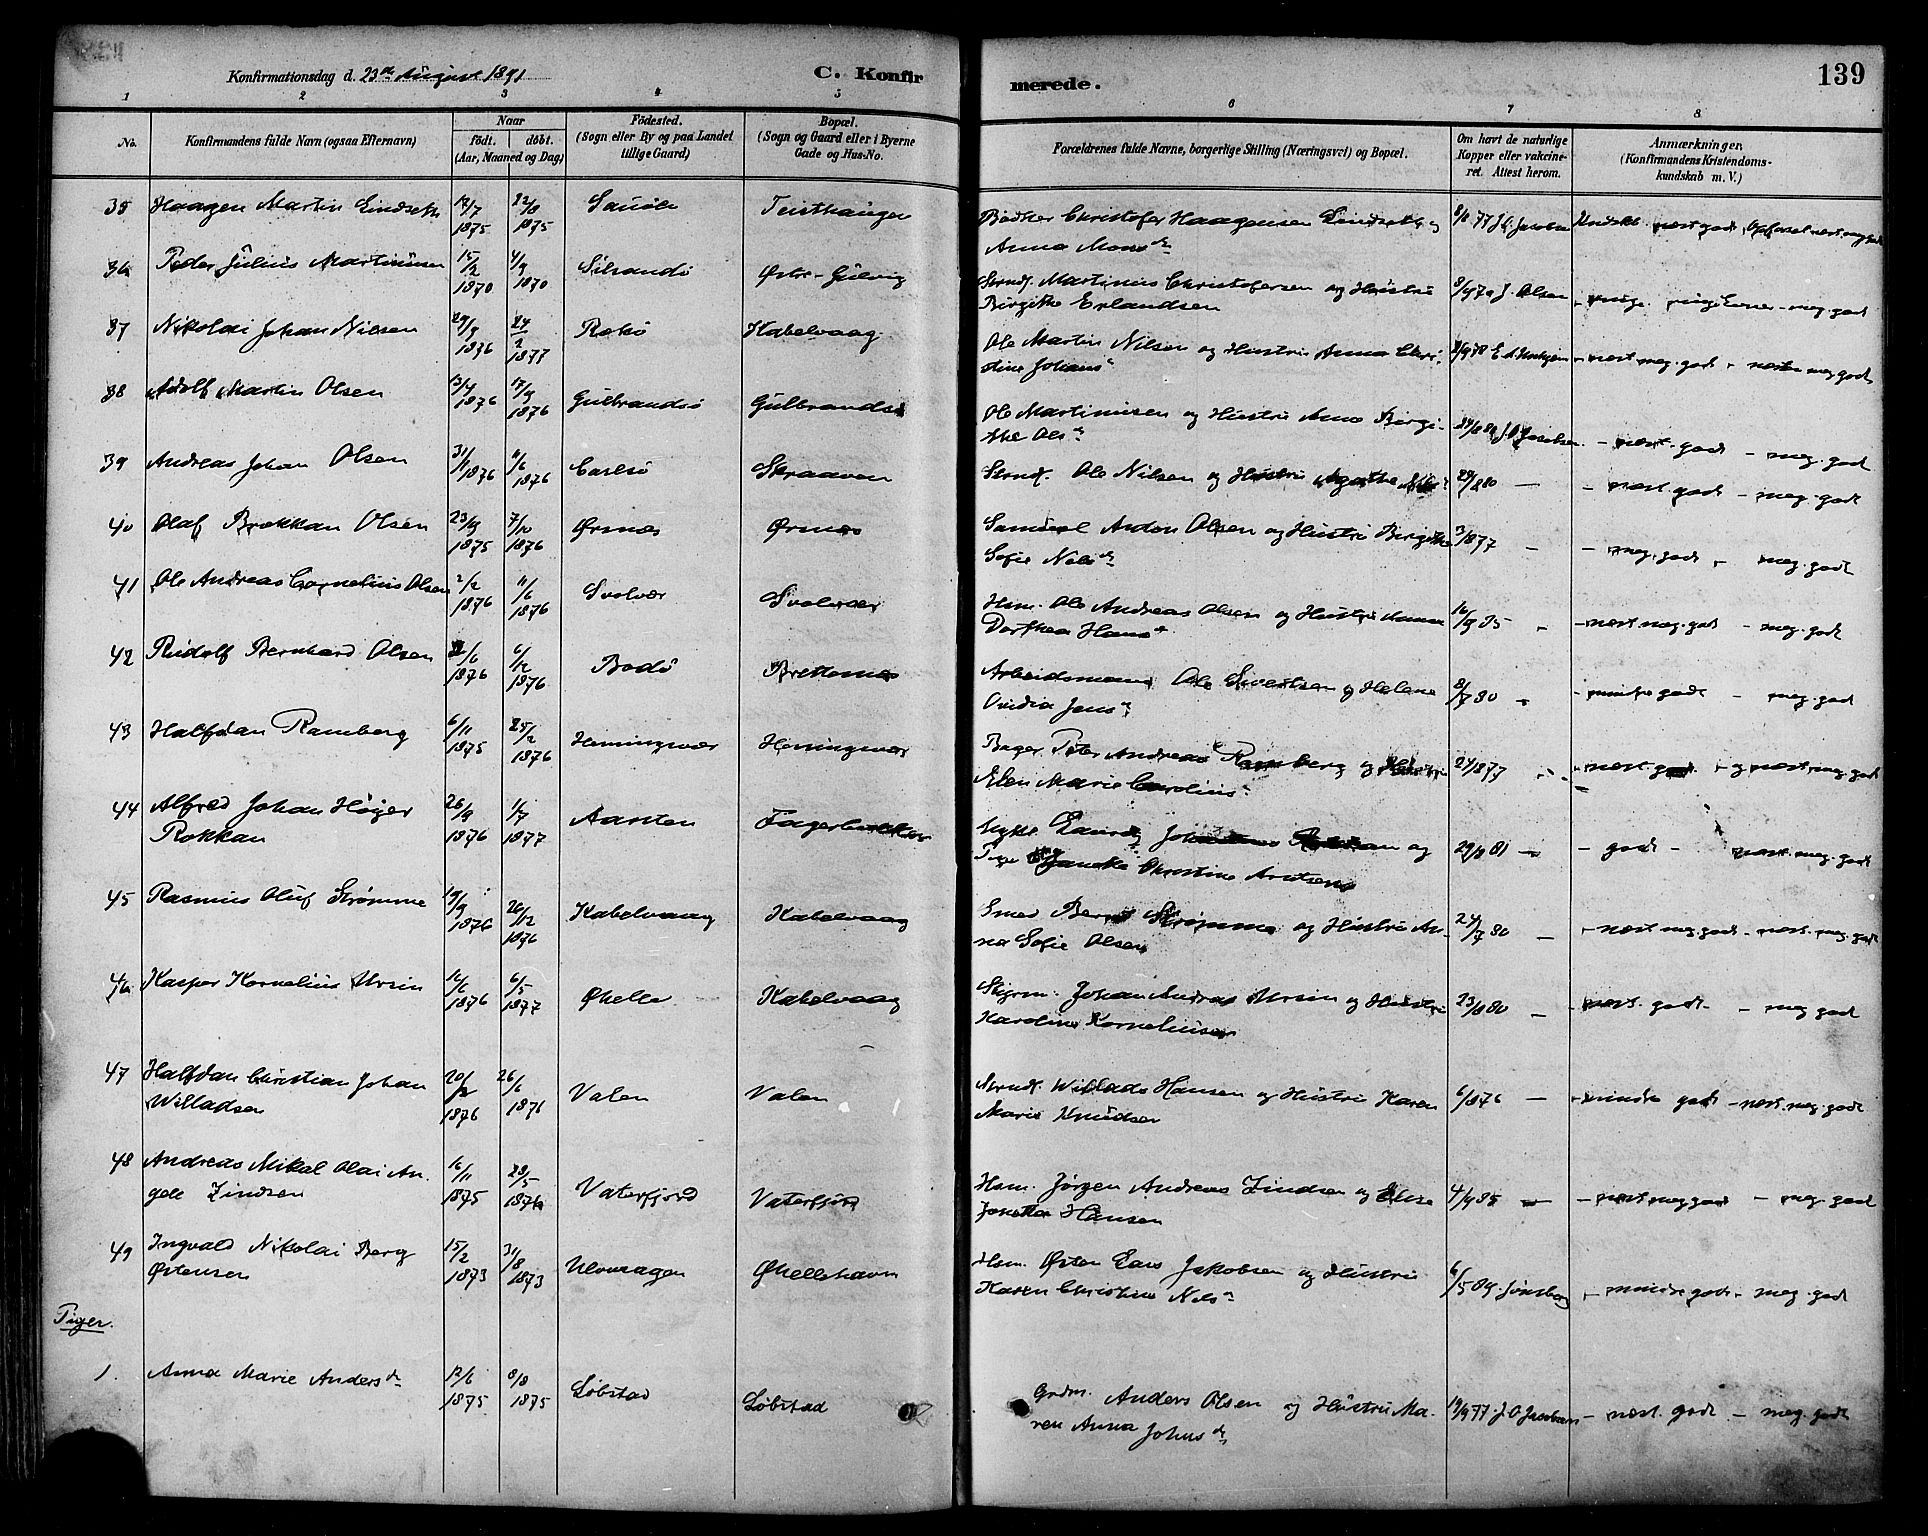 139
Konfirmationsdag d. 23de August 1891
C. Konfir
merede.
1 2 3 4 5 6 7 8
No.
Konfirmandens fulde Navn (ogsaa Efternavn)
Naar
født. døbt.
(Aar, Maaned og Dag)
Fødested.
(Sogn eller By og paa Landet
tillige Gaard)
Bopæl.
(Sogn og Gaard eller i Byerne
Gade og Hus-No.
Forældrenes fulde Navne, borgerlige Stilling (Næringsvei) og Bopæl.
Om havt de naturlige
Kopper eller vakcine-
ret. Attest herom.
Anmærkninger.
(Konfirmandens Kristendoms-
kundskab m. V.)
35 Haagen Martin Lindseth 1875 22/8 1875 Teisthaugen Bødker Christofer Haagensen Lindseth og
Anna Mons dr
36 Peder Julius Martinusen 15/2 1870 4/9 1870 Østre-Gulvig Strmdf. Martinus Christofersen og Hustru
Birgitte Erlandsen meg. godt
37 Nikolai Johan Nilsen 29/9 1876 24/2 1877 Kabelvaag Ole Martin Nilsen og Hustru Anna Chri-
stine Johans dr næst meg. godt - næsten meg godt
38 Adolf Martin Olsen 13/4 1876 17/9 1876 Gulbrandsø Gulbrandsø Ole Martinusen og Hustru Anna Birgi-
the Ols dr J.O. Jacobsen - næst. godt - meg. godt
39 Andreas Johan Olsen 1876 6/6 1876 Carlsø Skraaven Strmdf. Ole Nilsen og Hustru Agathe 29/8 80 - næst godt - meg. godt
40 Olaf Brokkan Olsen 23/9 1875 7/10 1876 Ørsnæs Ørsnæs Samuel Anton Olsen og Hustru Birgitte
Sofie Nels dr 3/8 77 - meg. godt - meg. godt
41 Ole Andreas Cornelius Olsen 2/2 1876 11/6 1876 Svolvær Svolvær Hsm. Ole Andreas Olsen og Hustru Anna
Dorthea Hans dr 16/9 85 - næst meg. godt - meg. godt
42 Rudolf Bernhard Olsen 1876 6/12 1876 Bodø Brettesnæs Arbeidsmand Ole Sivertsen og Helene
Ovidia Jens dr 8/7 80 - mindre godt - meg. godt
43 Halfdan Ramberg 6/11 1875 25/2 1876 Henningsvær Henningsvær Bager Peter Andreas Ramberg og Hustru
Elen Marie Carolius dr 27/8 77 - næst godt - og næst meg. godt
44 Alfred Johan Høyer
Rokkan 26/9 1876 1/7 1877 Aarsten og
Pige Janeke Christine Arntsens 29/8 81 - godt - næst. meg. godt
45 Rasmus Oluf Strømme 19/9 1876 26/12 1876 Kabelvaag Kabelvaag Smed Bernt Strømme og Hustru An-
na Sofie Olsen 24/7 80 - næst meg. godt - næst. meg. godt
46 Kasper Kornelius Ursin 16/6 1876 6/5 1877 Øhelle Kabelvaag Styrm. Johan Andreas Ursin og Hustru
Karoline Korneliusen 23/8 80 - næst. godt - meg godt
47 Halfdan Christian Johan
Willadsen 20/2 1876 26/6 1876 Valen Valen Strmdf. Willads Hansen og Hustru Karen
Marie Knudsen 6/8 76 - mindre godt - næst. meg. godt
48 Andreas Mikal Olai An-
gell Zindsen 16/11 1875 28/5 1876 Vaterfjord Vaterfjord Hsm. Jørgen Andreas Zindsen og Elise
Jonetta Hansen 4/9 85 - næst meg godt - meg. godt
49 Ingvald Nikolai Berg
Østensen 15/2 1873 31/8 1873 Ulvaagen Øhellehavn Hsm. Østen Lars Jakobsen og Hustru
Karen Christine Nels dr - mindre godt - meg. godt
Piger.
1. Anna Marie Anders dr 12/6 1875 8/8 1875 Løbstad Løbstad Grdm. Anders Olsen og Hustru Ma-
ren Anna Johns dr 19/9 77 J O Jacobsen - næst. godt - meg. godt